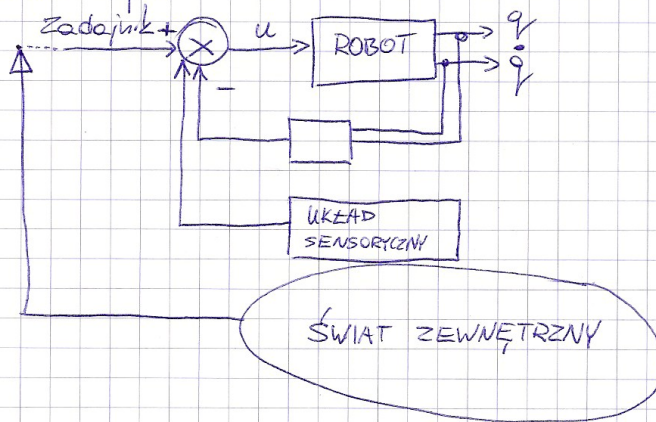 zadajnik +
u
ROBOT
q
q̇
-
UKŁAD
SENSORYCZNY
ŚWIAT ZEWNĘTRZNY